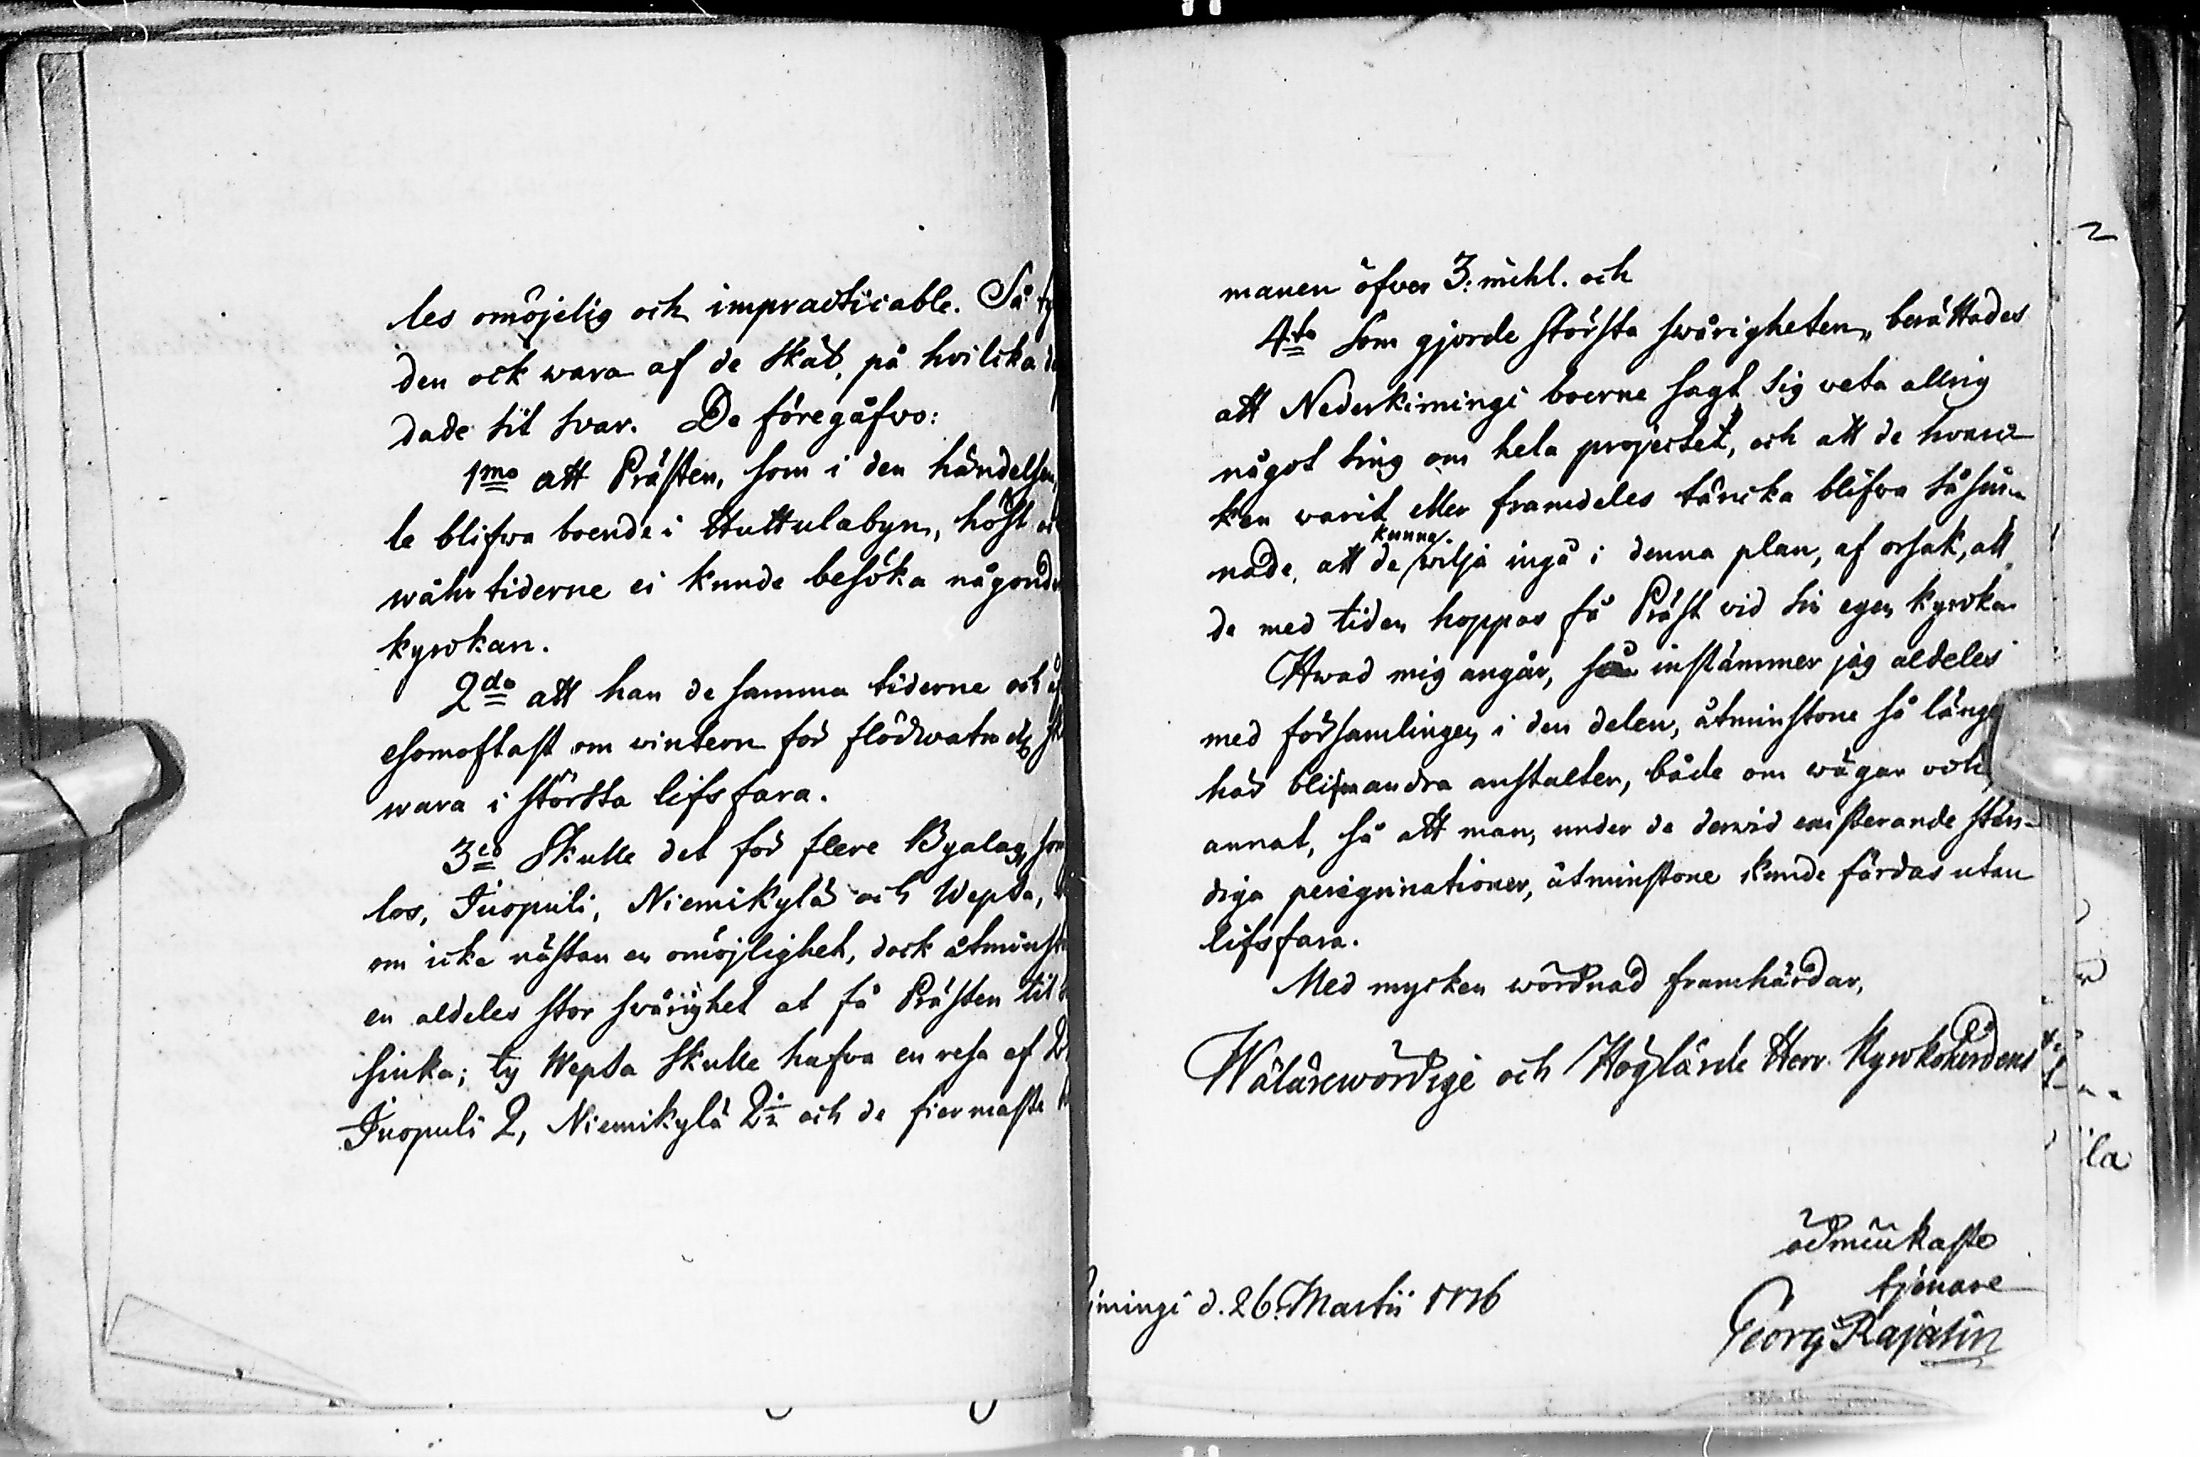 les omöjelig och impracticable. Så ty
den ock wara af de skät, på hvilcka
dade sit svar. De föregåfvo:
1mo att Prästen, som i den händelsen,
le blifwa boende i Huttulabyn, höst
währ tiderne ei kunde besöka någondera
kyrkan.
2do att han de samma tiderne och
esomoftast om wintern för flödwatn
wara i största lifsfara.
3io Skulle det för flere Byalag, som
los, Juopuli, Niemikylä och Wepsa,
om icke nästan en omöjlighet, dock åtminst
en aldeles stor swårighet at få Prästen til
siuka; ty Wepsa skulle hafva en resa af
Juopuli 2, Niemikylä 2½ och de fiermaste
manen öfver 3: mihl. och
4to Som gjorde största swårigheten, berättades
att Nederkimingi boerne sagt sig veta allsig
något ting om hela projectet, och att de hvarc
ken varit eller framdeles täncka blifva så sin-
nade, att de kunna wilja ingå i denna plan, af orsak, att
de med tiden hoppas få Präst vid sin egen kyrka
Hwad mig angår, så instämmer jag aldeles
med församlingen i den delen, åtminstone så länge
här blifva andra anstalter, både om wägar och
annat, så att man, under de derwid existerande stän-
diga peregrinationer, åtminstone kunde färdas utan
lifsfara.
Med mycken wördnad framhärdar,
Wälärewördige och Höglärde Herr Kyrkoherdens
ödmiukaste
tjenare
imingi d. 26. Martii 1776
Georg Rajalin
2
la